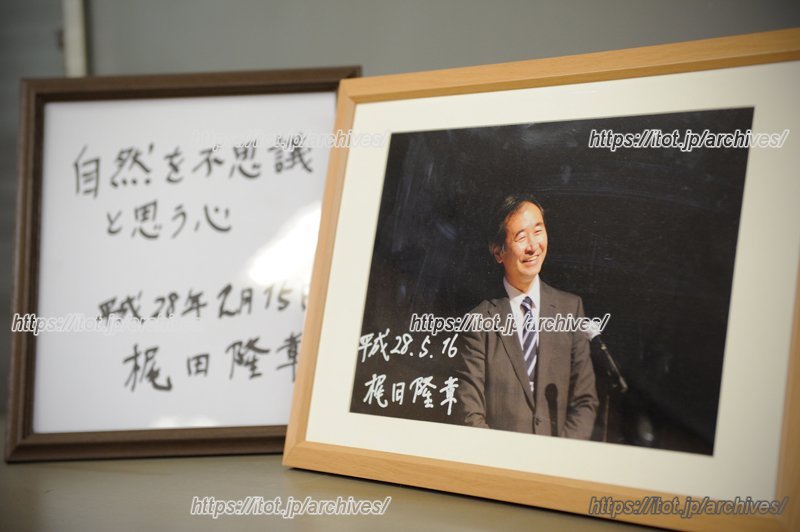 自然を不思議
と思う心
平成28年2月15日
梶田隆章
平成28.5.16
梶田隆章
https://itot.jp/archives/
https://itot.jp/archives/
https://itot.jp/archives/
https://itot.jp/archives/
https://itot.jp/archives/
https://itot.jp/archives/